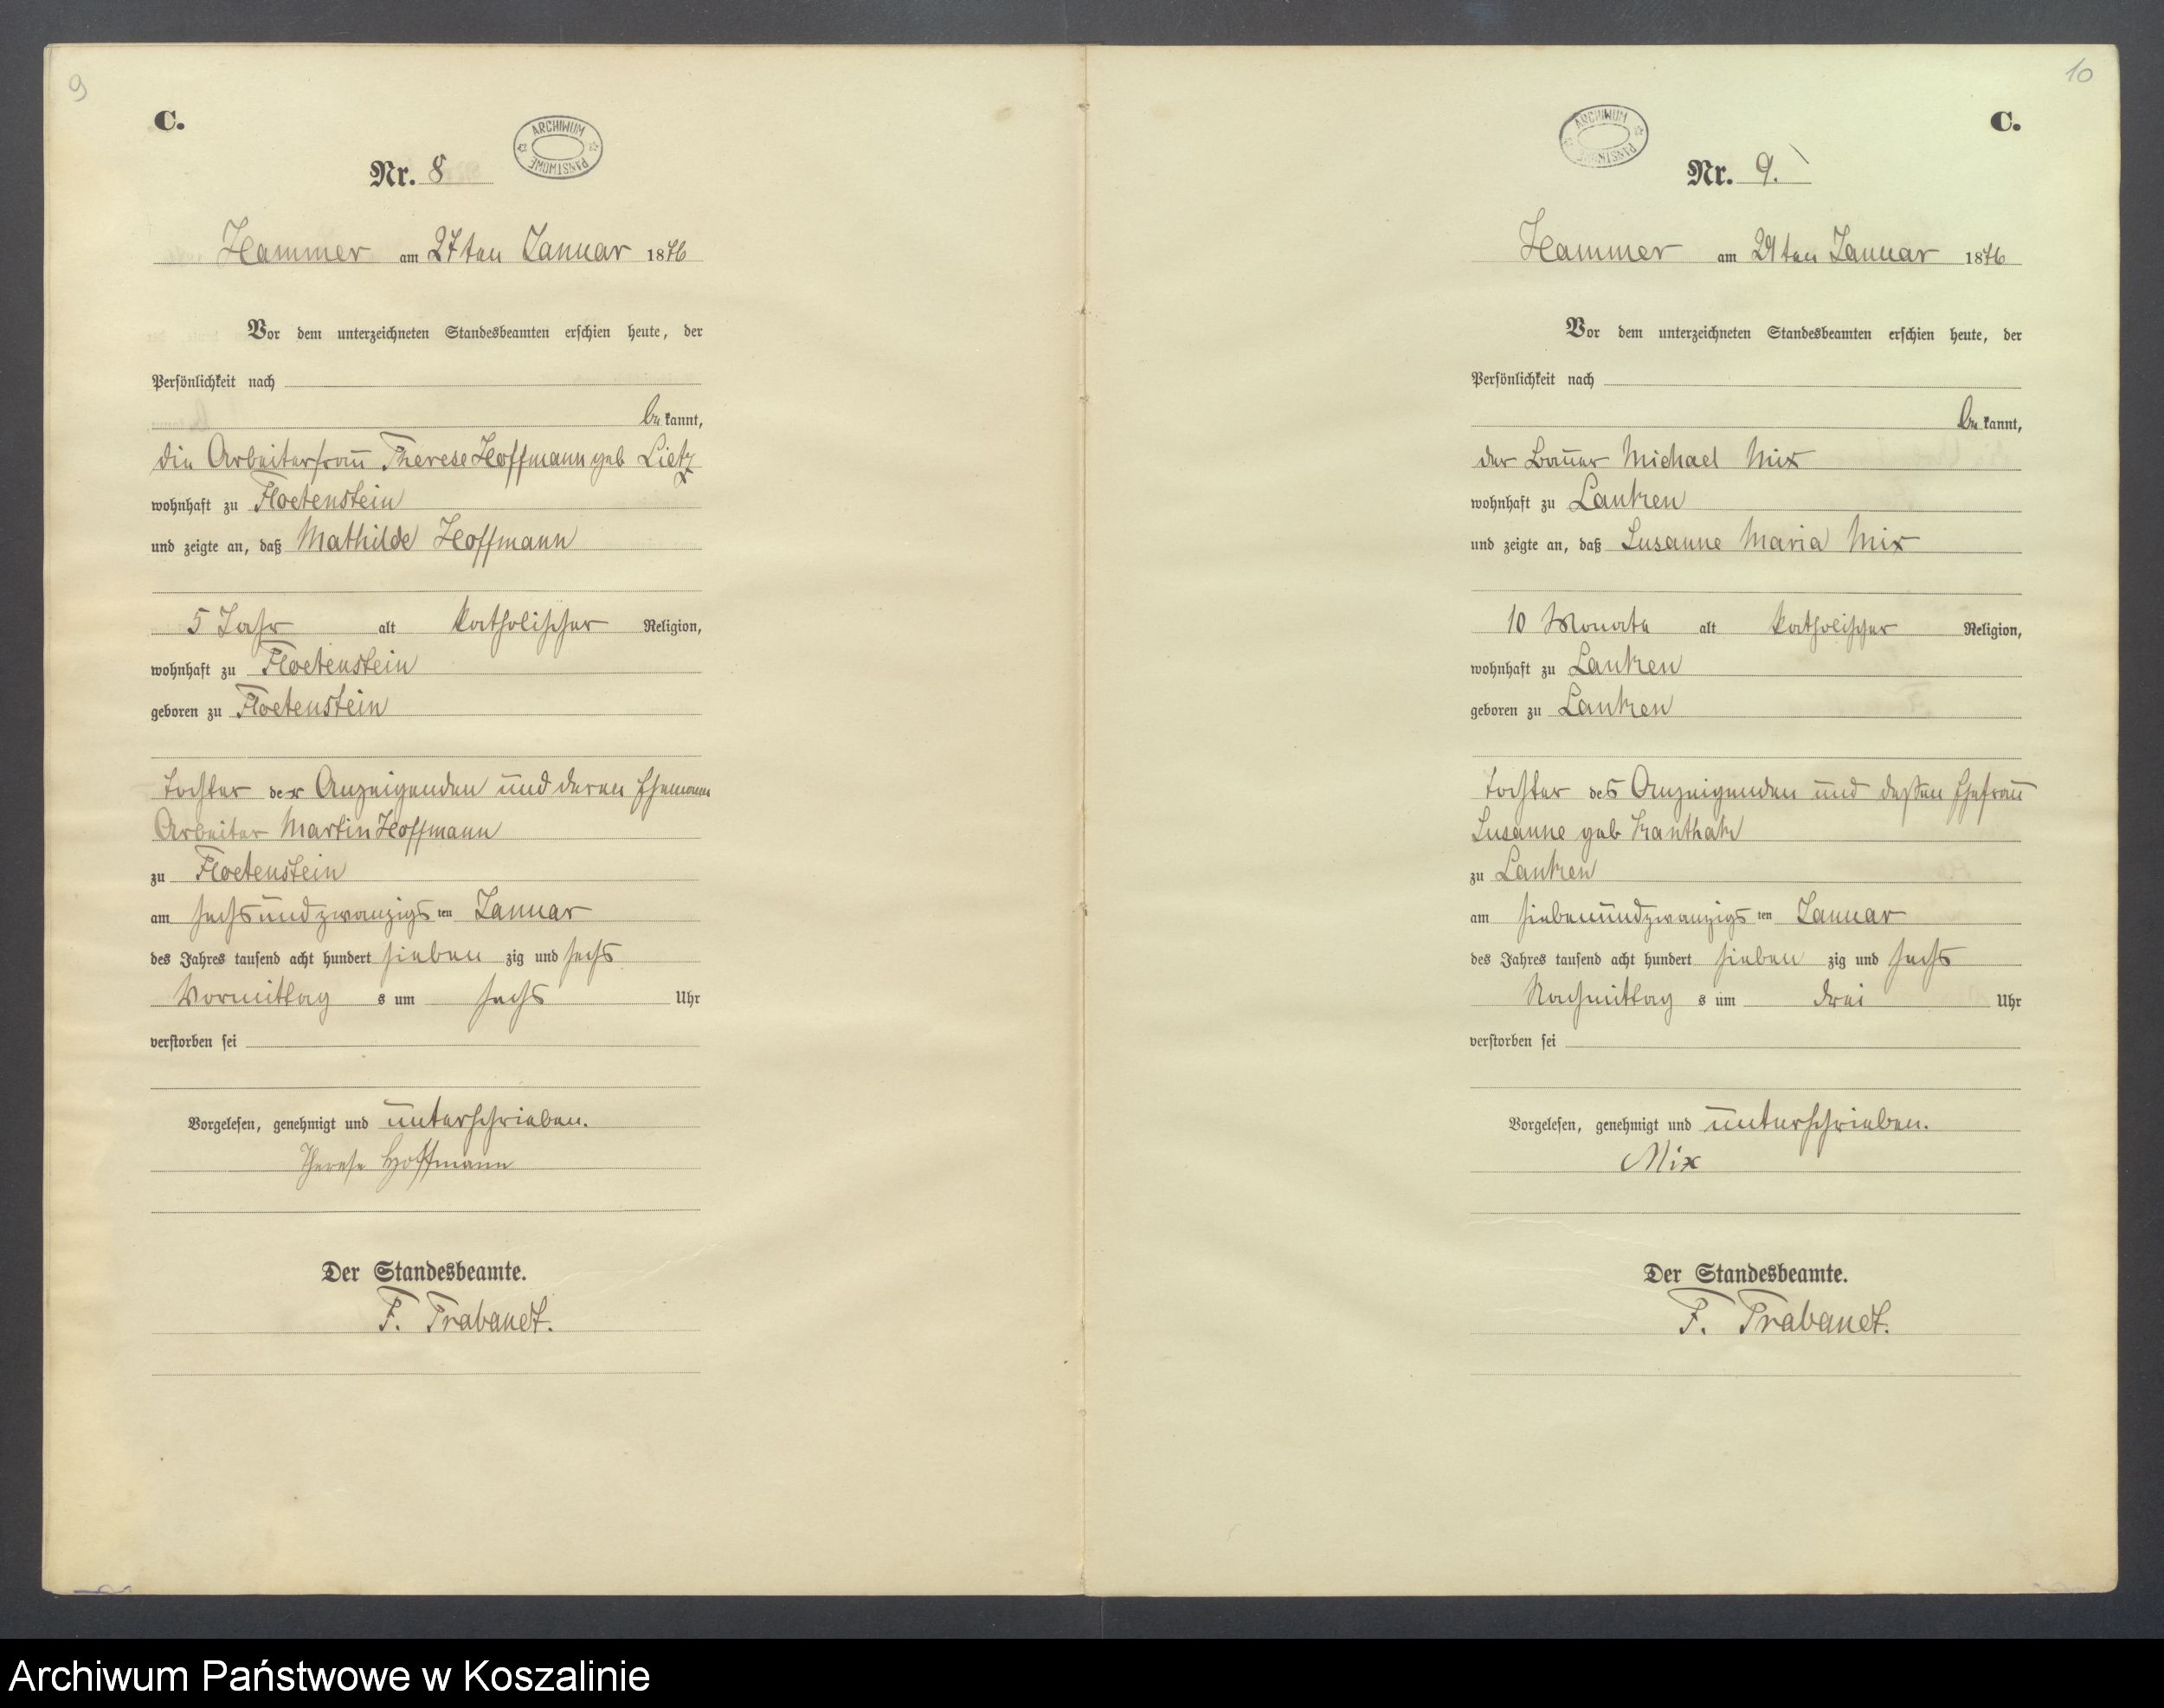 9
C.
ARCHIWUM PAŃSTWOWE
Nr. 8
Hammer am 27ten Januar 1876
Vor dem unterzeichneten Standesbeamten erschien heute, der
Persönlichkeit nach
bekannt,
die Arbeiterfrau Therese Hoffmann geb Lietz
wohnhaft zu Floetenstein
und zeigte an, daß Mathilde Hoffmann
5 Jahr alt katholischer Religion,
wohnhaft zu Floetenstein
geboren zu Floetenstein
tochter der Anzeigenden und deren Ehemann
Arbeiter Martin Hoffmann
zu Floetenstein
am sechsundzwanzigsten Januar
des Jahres tausend acht hundert sieben zig und sechs
Vormittag s um sechs Uhr
verstorben sei
Vorgelesen, genehmigt und unterschrieben.
Therese Hoffmann
Der Standesbeamte.
F. Trabandt.
10
C.
ARCHIWUM PAŃSTWOWE
Nr. 9.
Hammer am 29ten Januar 1876
Vor dem unterzeichneten Standesbeamten erschien heute, der
Persönlichkeit nach
bekannt,
der Bauer Michael Mix
wohnhaft zu Lanken
und zeigte an, daß Susanne Maria Mix
10 Monate alt katholischer Religion,
wohnhaft zu Lanken
geboren zu Lanken
tochter des Anzeigenden und deßen Ehefrau
Susanne geb Kanthak
zu Lanken
am siebenundzwanzigsten Januar
des Jahres tausend acht hundert sieben zig und sechs
Nachmittag s um drei Uhr
verstorben sei
Vorgelesen, genehmigt und unterschrieben.
Mix
Der Standesbeamte.
F. Trabandt.
Archiwum Państwowe w Koszalinie